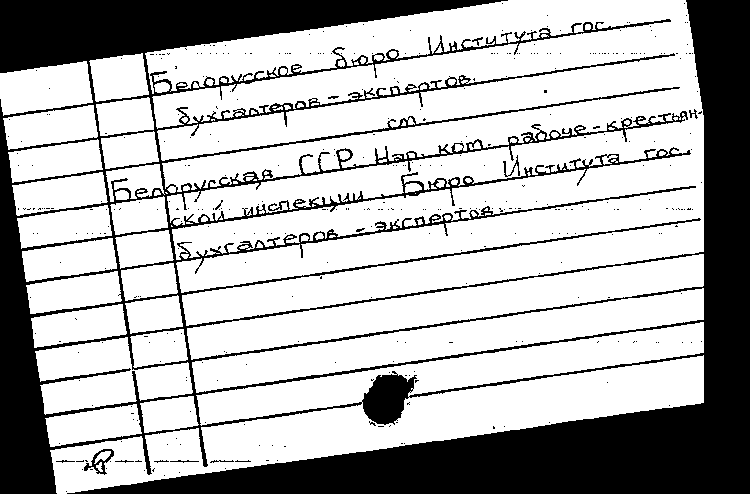 Белорусское бюро Института гос.
бухгалтеров-экспертов.
см.
Белорусская ССР. Нар. ком. рабоче-крестьян-
ской инспекции. Бюро Института гос.
бухгалтеров-экспертов.